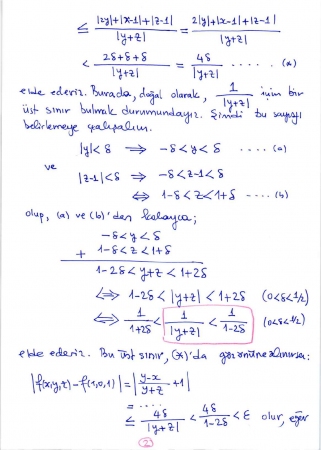 ≤ |2y|+|x-1|+|z-1| / |y+z| = 2|y|+|x-1|+|z-1| / |y+z|
< 2δ+δ+δ / |y+z| = 4δ / |y+z| ..... (*)
elde ederiz. Burada, doğal olarak, 1/|y+z| için bir
üst sınır bulmak durumundayız. Şimdi bu sayıyı
belirlemeye çalışalım.
|y|<δ ⟹ -δ<y<δ .... (a)
ve
|z-1|<δ ⟹ -δ<z-1<δ
⟺ 1-δ<z<1+δ .... (b)
olup, (a) ve (b)'den kolayca;
-δ<y<δ
+ 1-δ<z<1+δ
1-2δ<y+z<1+2δ
⟺ 1-2δ<|y+z|<1+2δ (0<δ<1/2)
⟺ 1/1+2δ < 1/|y+z| < 1/1-2δ (0<δ<1/2)
elde ederiz. Bu üst sınır, (*)'da göz önüne alınırsa:
|f(x,y,z)-f(1,0,1)| = |y-x / y+z +1|
= ....
≤ 4δ/|y+z| < 4δ/1-2δ < ε olur, eğer
2